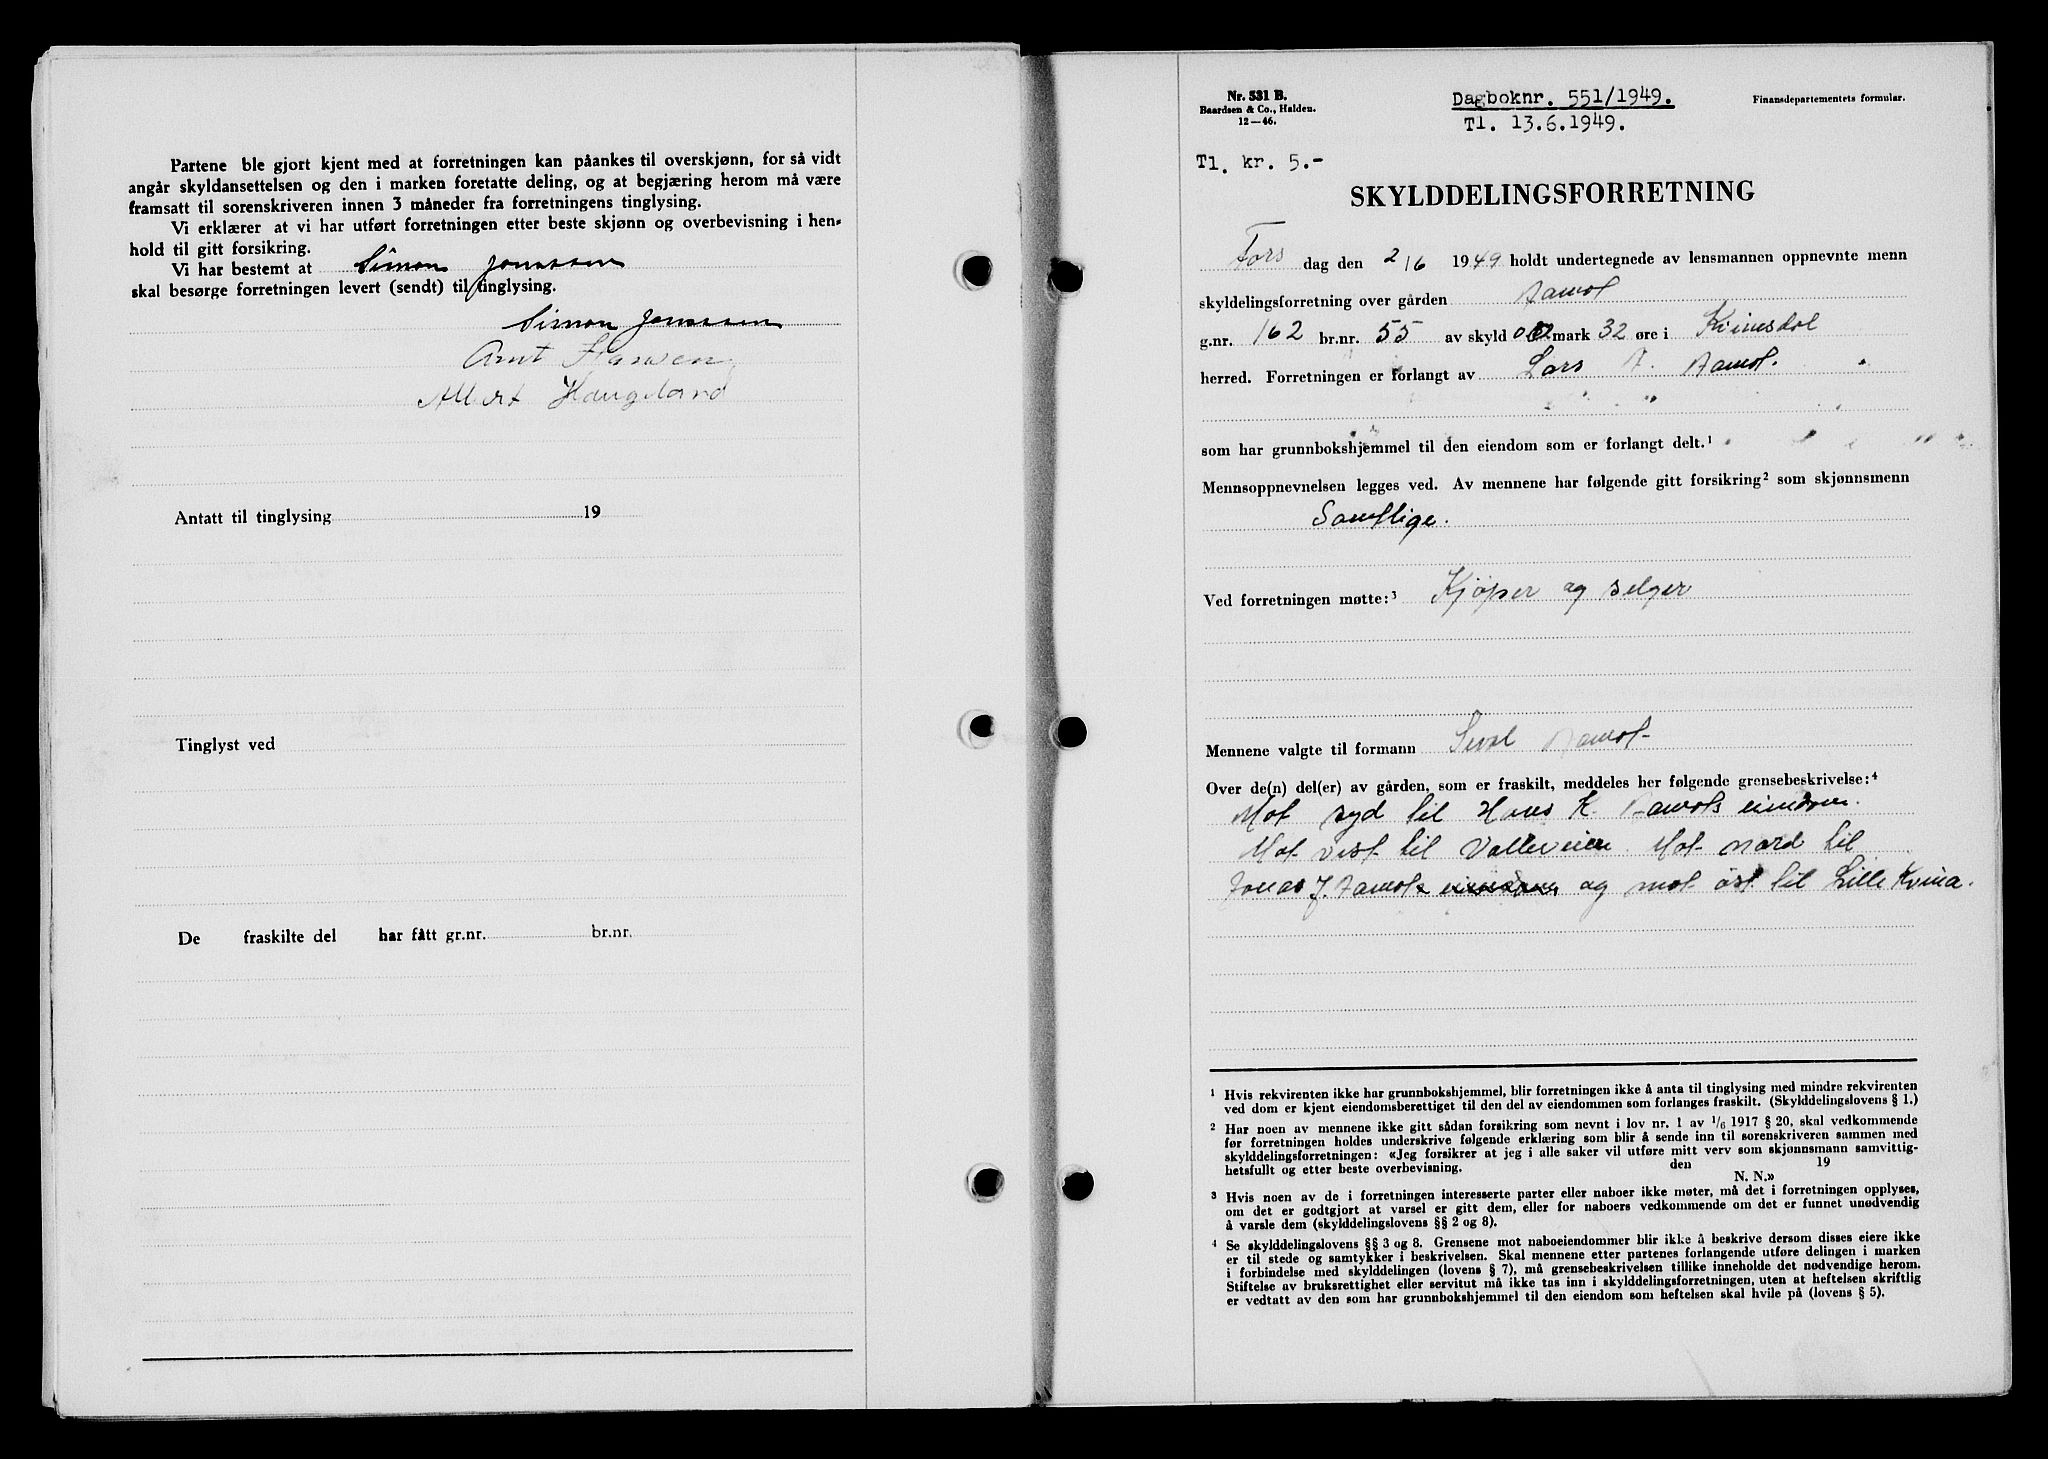 Partene ble gjort kjent med at forretningen kan påankes til overskjønn, for så vidt
angår skyldansettelsen og den i marken foretatte deling, og at begjæring herom må være
framsatt til sorenskriveren innen 3 måneder fra forretningens tinglysing.
Vi erklærer at vi har utført forretningen etter beste skjønn og overbevisning i hen-
hold til gitt forsikring.
Vi har bestemt at Simon Jonassen
skal besørge forretningen levert (sendt) til tinglysing.
Simon Jonassen
Arnt Hansen
Albert Haugeland
Antatt til tinglysing 19
Tinglyst ved
De fraskilte del har fått gr.nr. br.nr.
Nr. 531 B.
Baardsen & Co., Halden.
12—46.
Dagboknr. 551/1949.
Tl. 13.6.1949.
Finansdepartementets formular.
Tl. kr. 5.-
SKYLDDELINGSFORRETNING
Tors dag den 2/6 1949 holdt undertegnede av lensmannen oppnevnte menn
skyldelingsforretning over gården Aamot
g.nr. 162 br.nr. 55 av skyld mark 32 øre i Kvinesdal
herred. Forretningen er forlangt av Lars Aamot.
som har grunnbokshjemmel til den eiendom som er forlangt delt.¹
Mennsoppnevnelsen legges ved. Av mennene har følgende gitt forsikring² som skjønnsmenn
Samtlige.
Ved forretningen møtte:³ Kjöper og selger
Mennene valgte til formann Sivert Aamot
Over de(n) del(er) av gården, som er fraskilt, meddeles her følgende grensebeskrivelse:⁴
Mot syd til Hans K. Aamots eiendom.
Mot vest til Vatleveien. Mot nord til
Jonas J. Aamot eiendom og mot öst til Lille Kvina.
¹ Hvis rekvirenten ikke har grunnbokshjemmel, blir forretningen ikke å anta til tinglysing med mindre rekvirenten
ved dom er kjent eiendomsberettiget til den del av eiendommen som forlanges fraskilt. (Skylddelingslovens § 1.)
² Har noen av mennene ikke gitt sådan forsikring som nevnt i lov nr. 1 av 1/6 1917 § 20, skal vedkommende
før forretningen holdes underskrive følgende erklæring som blir å sende inn til sorenskriveren sammen med
skylddelingsforretningen: «Jeg forsikrer at jeg i alle saker vil utføre mitt verv som skjønnsmann samvittig-
hetsfullt og etter beste overbevisning. den 19
N. N.»
³ Hvis noen av de i forretningen interesserte parter eller naboer ikke møter, må det i forretningen opplyses,
om det er godtgjort at varsel er gitt dem, eller for naboers vedkommende om det er funnet unødvendig
å varsle dem (skylddelingslovens §§ 2 og 8).
⁴ Se skylddelingslovens §§ 3 og 8. Grensene mot naboeiendommer blir ikke å beskrive dersom disses eiere ikke
er til stede og samtykker i beskrivelsen. Skal mennene etter partenes forlangende utføre delingen i marken
i forbindelse med skylddelingen (lovens § 7), må grensebeskrivelsen tillike inneholde det nødvendige herom.
Stiftelse av bruksrettighet eller servitut må ikke tas inn i skylddelingsforretningen, uten at heftelsen skriftlig
er vedtatt av den som har grunnbokshjemmel til den eiendom som heftelsen skal hvile på (lovens § 5).